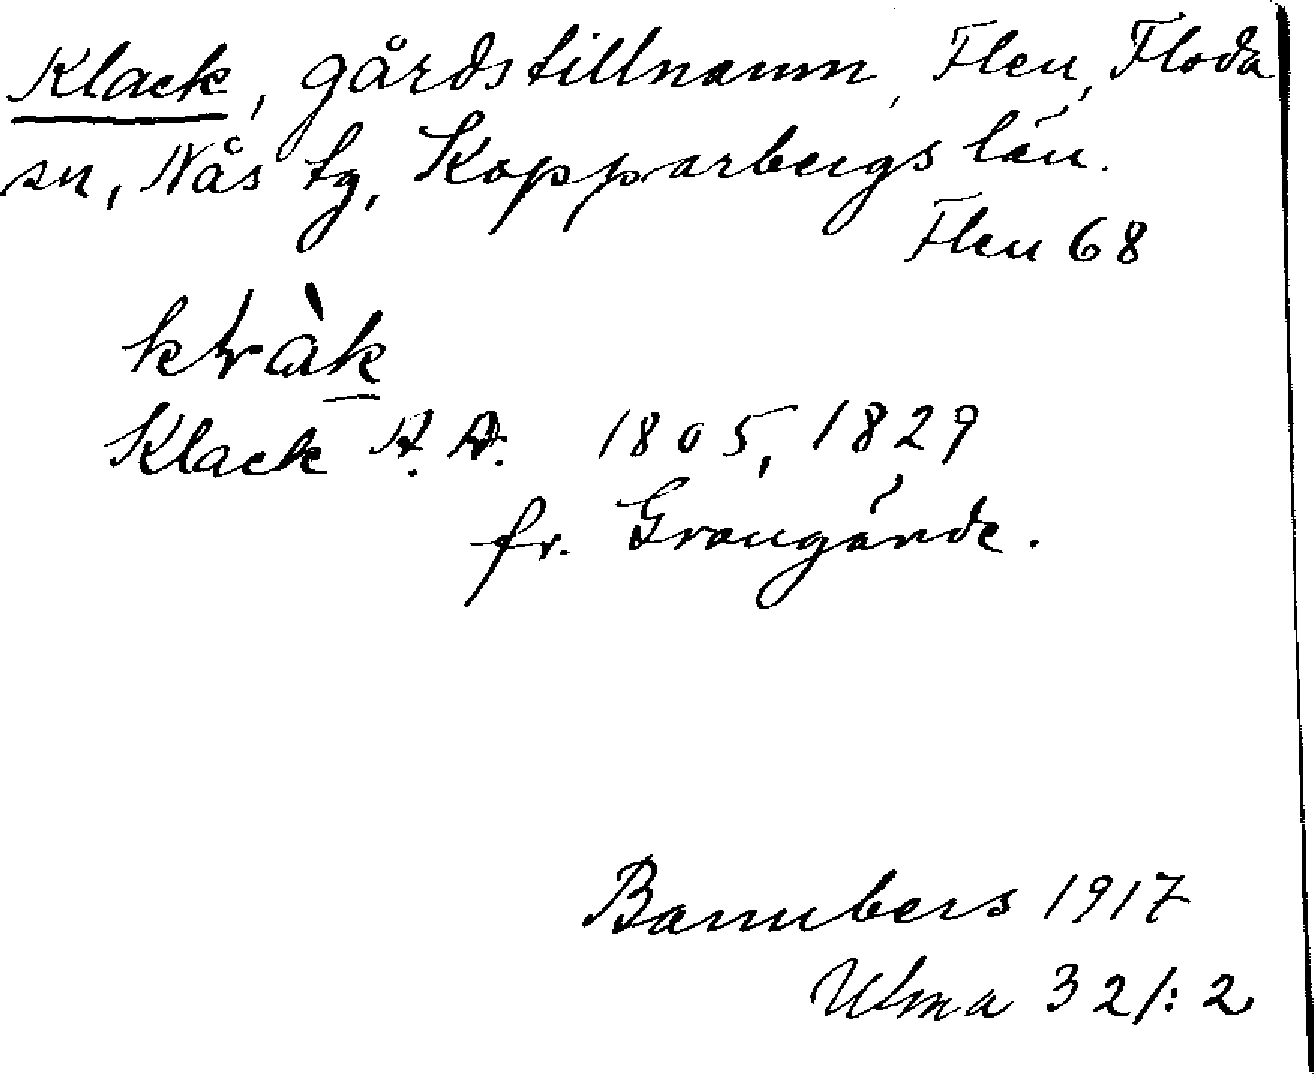 Klack, gårdstillnamn, Flen, Floda
sn, Nås tg, Kopparbergs län.
Flen 68
Klack A. A. 1805, 1829
fr. Grangärde.
Bannbers 1917
Ulma 321:2